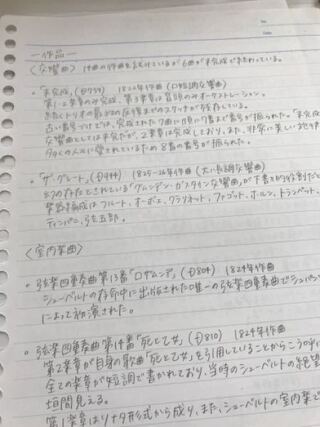 ー作品ー
〈交響曲〉 14曲の作曲を試みているが6曲が未完成で終わっている。
・「未完成」(D759) 1822年作曲 (ロ短調交響曲)
第1・2楽章のみ完成、第3楽章は冒頭のみオーケストレーション。
古い番号づけでは、完成された7曲に1番から7番まで番号が振られた。「未完成」
交響曲としては未完だが、2楽章は完成しており、また、非常に美しい
多くの人々に愛されているため8番の番号が振られた。
・「ザ・グレート」(D944) 1825-26年作曲 (大ハ長調交響曲)
幻の存在とされている「グムンデン・ガスタイン交響曲」が
楽器編成はフルート、オーボエ、クラリネット、ファゴット、ホルン、トランペット、
ティンパニ、弦五部。
〈室内楽曲〉
・弦楽四重奏曲第13番「ロザムンデ」(D804) 1824年作曲
シューベルトの存命中に出版された唯一の弦楽四重奏曲でシュパン
によって初演された。
・弦楽四重奏曲第14番「死と乙女」(D810) 1824年作曲
第2楽章が自身の歌曲「死と乙女」を引用していることからこう呼
全ての楽章が短調で書かれており、当時のシューベルトの絶望
垣間見える。
第1楽章はソナタ形式から成り、また、シューベルトの室内楽で